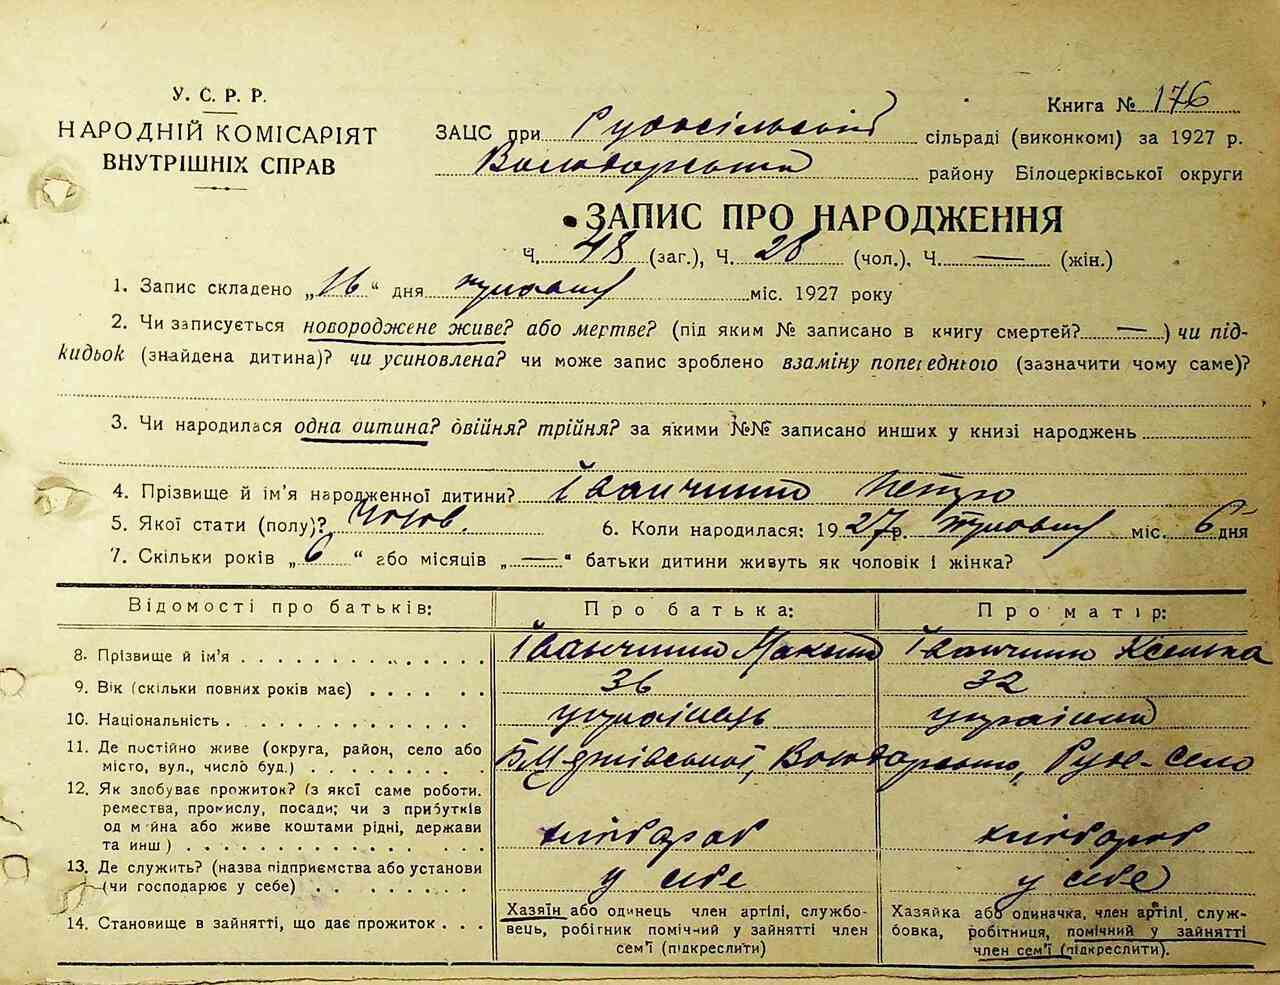 У. С. Р. Р.
НАРОДНІЙ КОМІСАРІЯТ
ВНУТРІШНІХ СПРАВ
Книга № 176
ЗАЦС при Рудосільській сільраді (виконкомі) за 1927 р.
Володарського району Білоцерківської округи
ЗАПИС ПРО НАРОДЖЕННЯ
Ч. 48 (заг.), Ч. 28 (чол.), Ч. — (жін.)
1. Запис складено „16“ дня міс. 1927 року
2. Чи записується новороджене живе? або мертве? (під яким № записано в книгу смертей? — ) чи під-
кидьок (знайдена дитина)? чи усиновлена? чи може запис зроблено взаміну попереднього (зазначити чому саме)?
3. Чи народилася одна дитина? двійня? трійня? за якими №№ записано инших у книзі народжень
4. Прізвище й ім'я народженної дитини? Іванчишин Петро
5. Якої стати (полу)? Чолов. 6. Коли народилася: 1927 р. міс. 6 дня
7. Скільки років „6“ або місяців „—“ батьки дитини живуть як чоловік і жінка?
Відомості про батьків: Про батька: Про матір:
8. Прізвище й ім'я Іванчишин Максим Іванчишин Ксенька
9. Вік (скільки повних років має) 36 32
10. Національність українець
11. Де постійно живе (округа, район, село або
місто, вул., число буд.) Володарського, Руде-Село
12. Як здобуває прожиток? (з якої саме роботи.
ремества, промислу, посади; чи з прибутків
од майна або живе коштами рідні, держави
та инш) хлібороб хлібороб
13. Де служить? (назва підприємства або установи
(чи господарює у себе) у себе у себе
14. Становище в зайнятті, що дає прожиток
Хазяїн або одинець член артілі, службо-
вець, робітник помічний у зайнятті член
сем'ї (підкреслити)
Хазяйка або одиначка, член артілі, служ-
бовка, робітниця, помічний у зайнятті
член сем'ї (підкреслити).